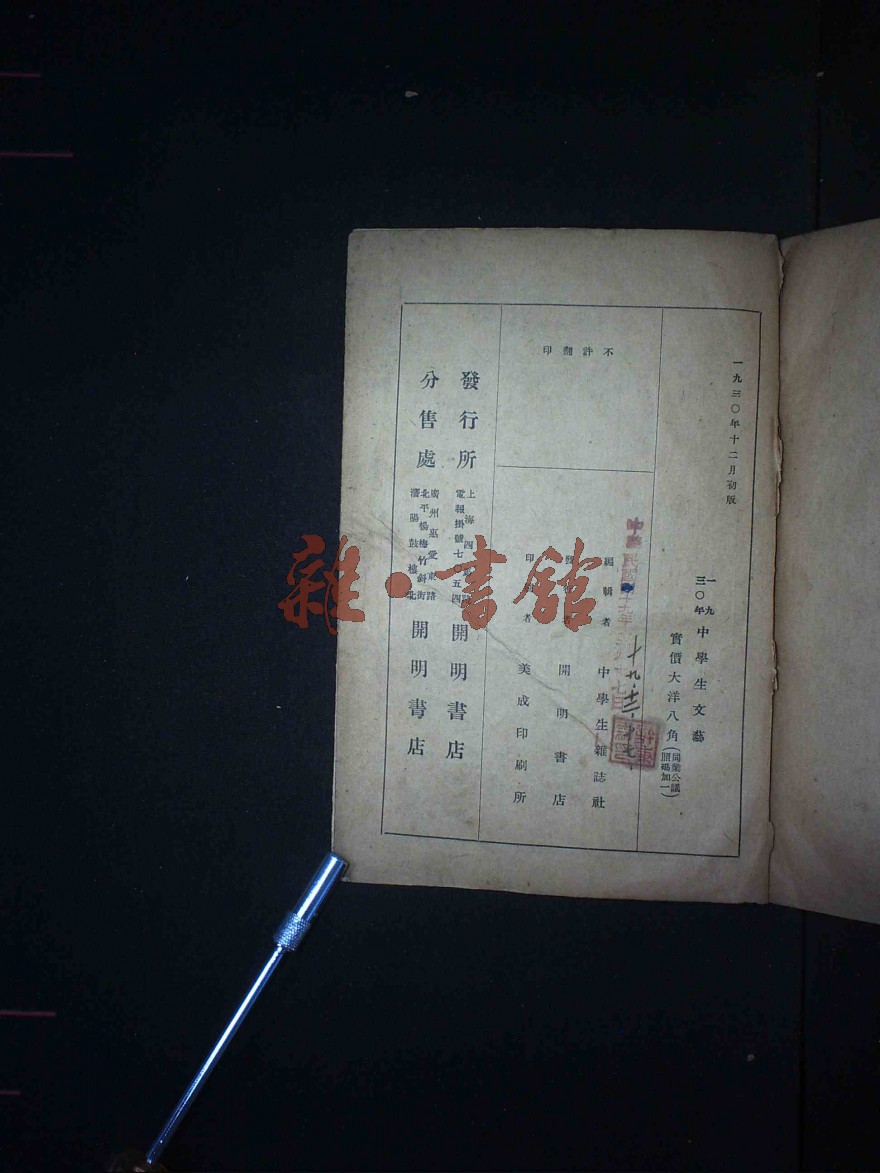 一九三〇年十二月初版
一九三〇年 中學生文藝
實價大洋八角(同業公議照碼加一)
不許翻印
編輯者 中學生雜誌社
發行者 開明書店
印刷者 美成印刷所
發行所 上海四馬路 電報掛號七〇五四 開明書店
分售處 廣州惠愛東路 北平楊梅竹斜街 瀋陽鼓樓北 開明書店
十九·十二·十七·
雜·書館